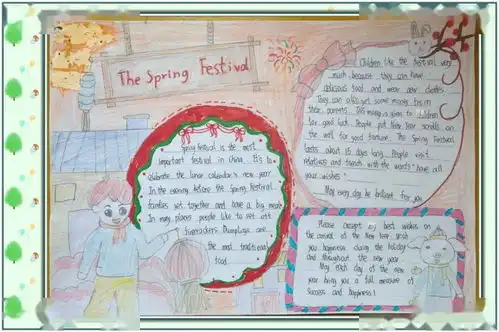 The Spring Festival
Spring festival is the most
important festival in China. It's to
celebrate the lunar calendar's new year
In the evening before the Spring Festival
families get together and have a big meal
In many places people like to set off
firecrackers Dumplings are
the most traditional
food
Children like the festival very
much because they can have
delicious food and wear new clothes
They can also get some money from
their parents. This money is given to children
for good luck. People put New Year scrolls on
the wall for good fortune. The Spring Festival
lasts about 15 days long People visit
relatives and friends with the words "have all
your wishes"
May every day be brilliant for you
Please accept my best wishes on
the arrival of the New Year wish
you happiness during the holiday
and throughout the new year
May each day of the new
year bring you a full measure of
success and happiness!